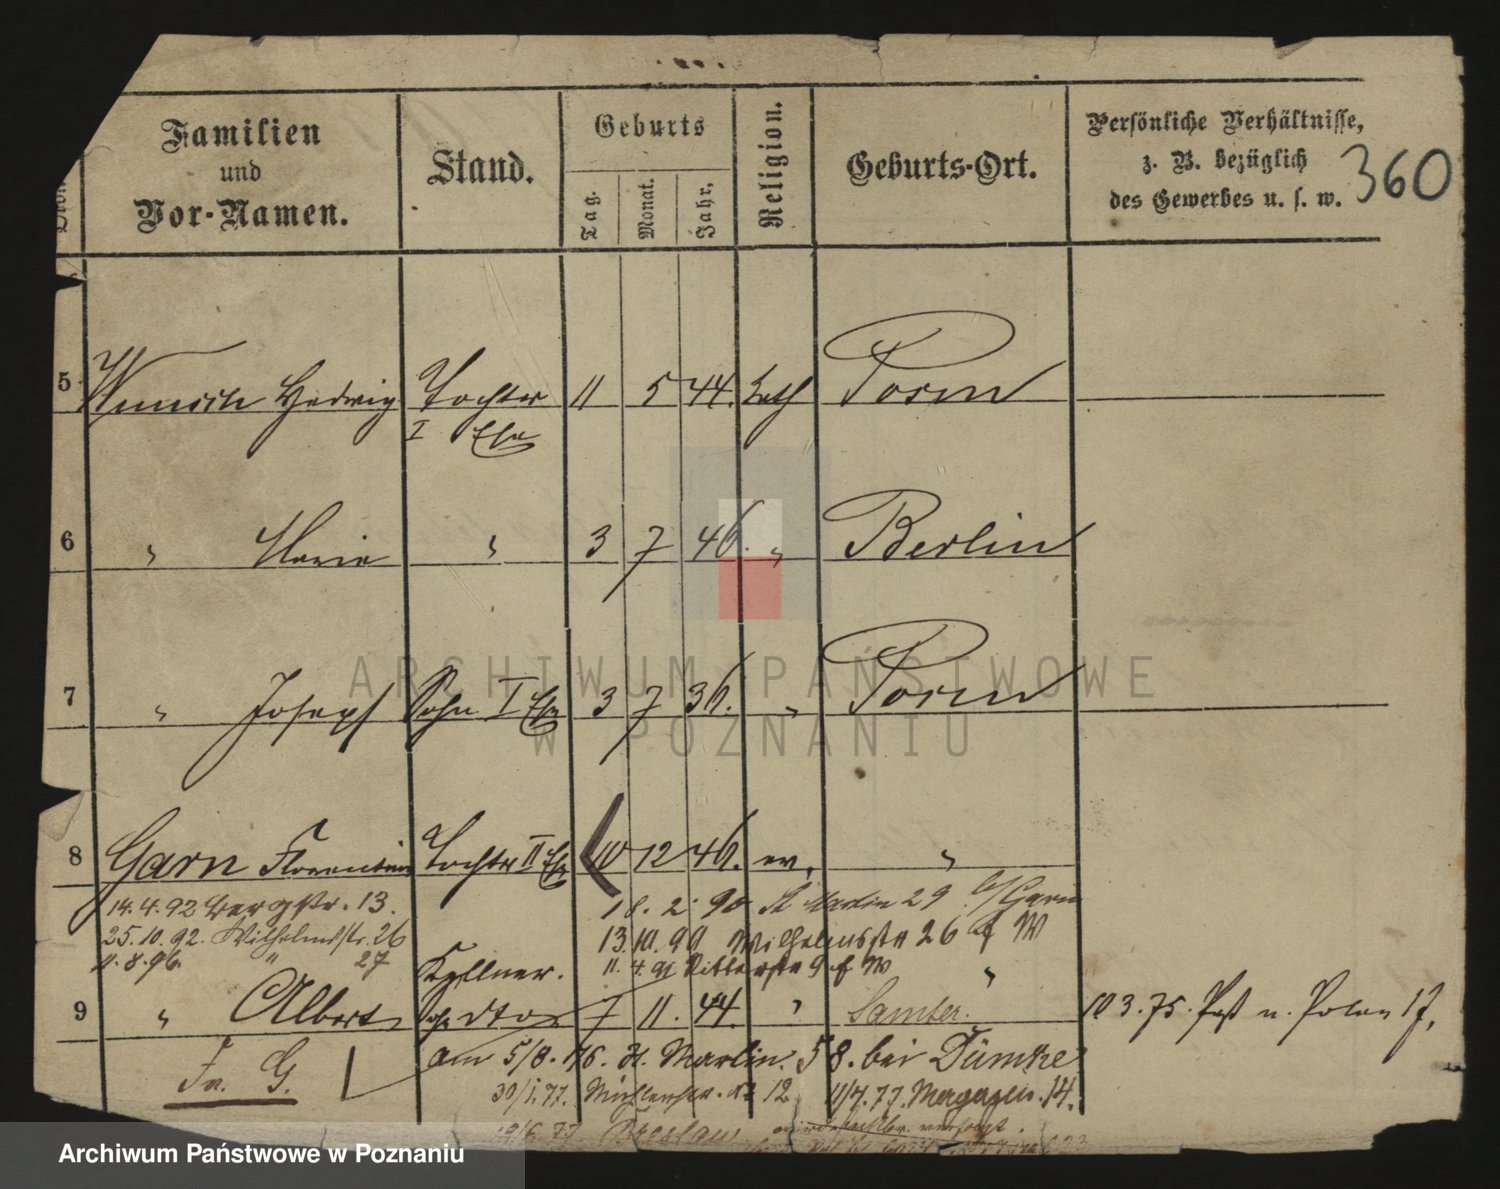 Familien
und
Vor-Namen.
Stand.
Geburts
Tag.
Monat.
Jahr.
Religion.
Geburts-Ort.
Persönliche Verhältnisse,
z. B. bezüglich
des Gewerbes u. s. w.
360
5 Wunsch Hedwig Tochter 11 5 44. kath Posen
I Ehe
6 " Marie " 3 7 46. " Berlin
7 " Joseph Sohn I Ehe 3 7 36. " Posen
8 Garn Florentine Tochter II Ehe 10 12 46. ev. "
14.4.92 Bergstr. 13.
18. 2. 90 St Martin 29 b/Garn
25.10.92. Wilhelmstr. 26
13.10.90 Wilhelmstr 26 W
11.8.96. " 27
11. 4. 91 Ritterstr 9 W
Kellner. "
9 " Albert Sohn dto 7 11. 44. " Samter. 10 3.75. Paß n. Polen 1 J.
Fr. G.
am 5/8. 76. St. Martin. 58. bei Dümke
30/1.77. Mühlenstr. 12 11/4.77. Magazin. 14.
19/6 77 Breslau
ARCHIWUM PAŃSTWOWE
W POZNANIU
Archiwum Państwowe w Poznaniu